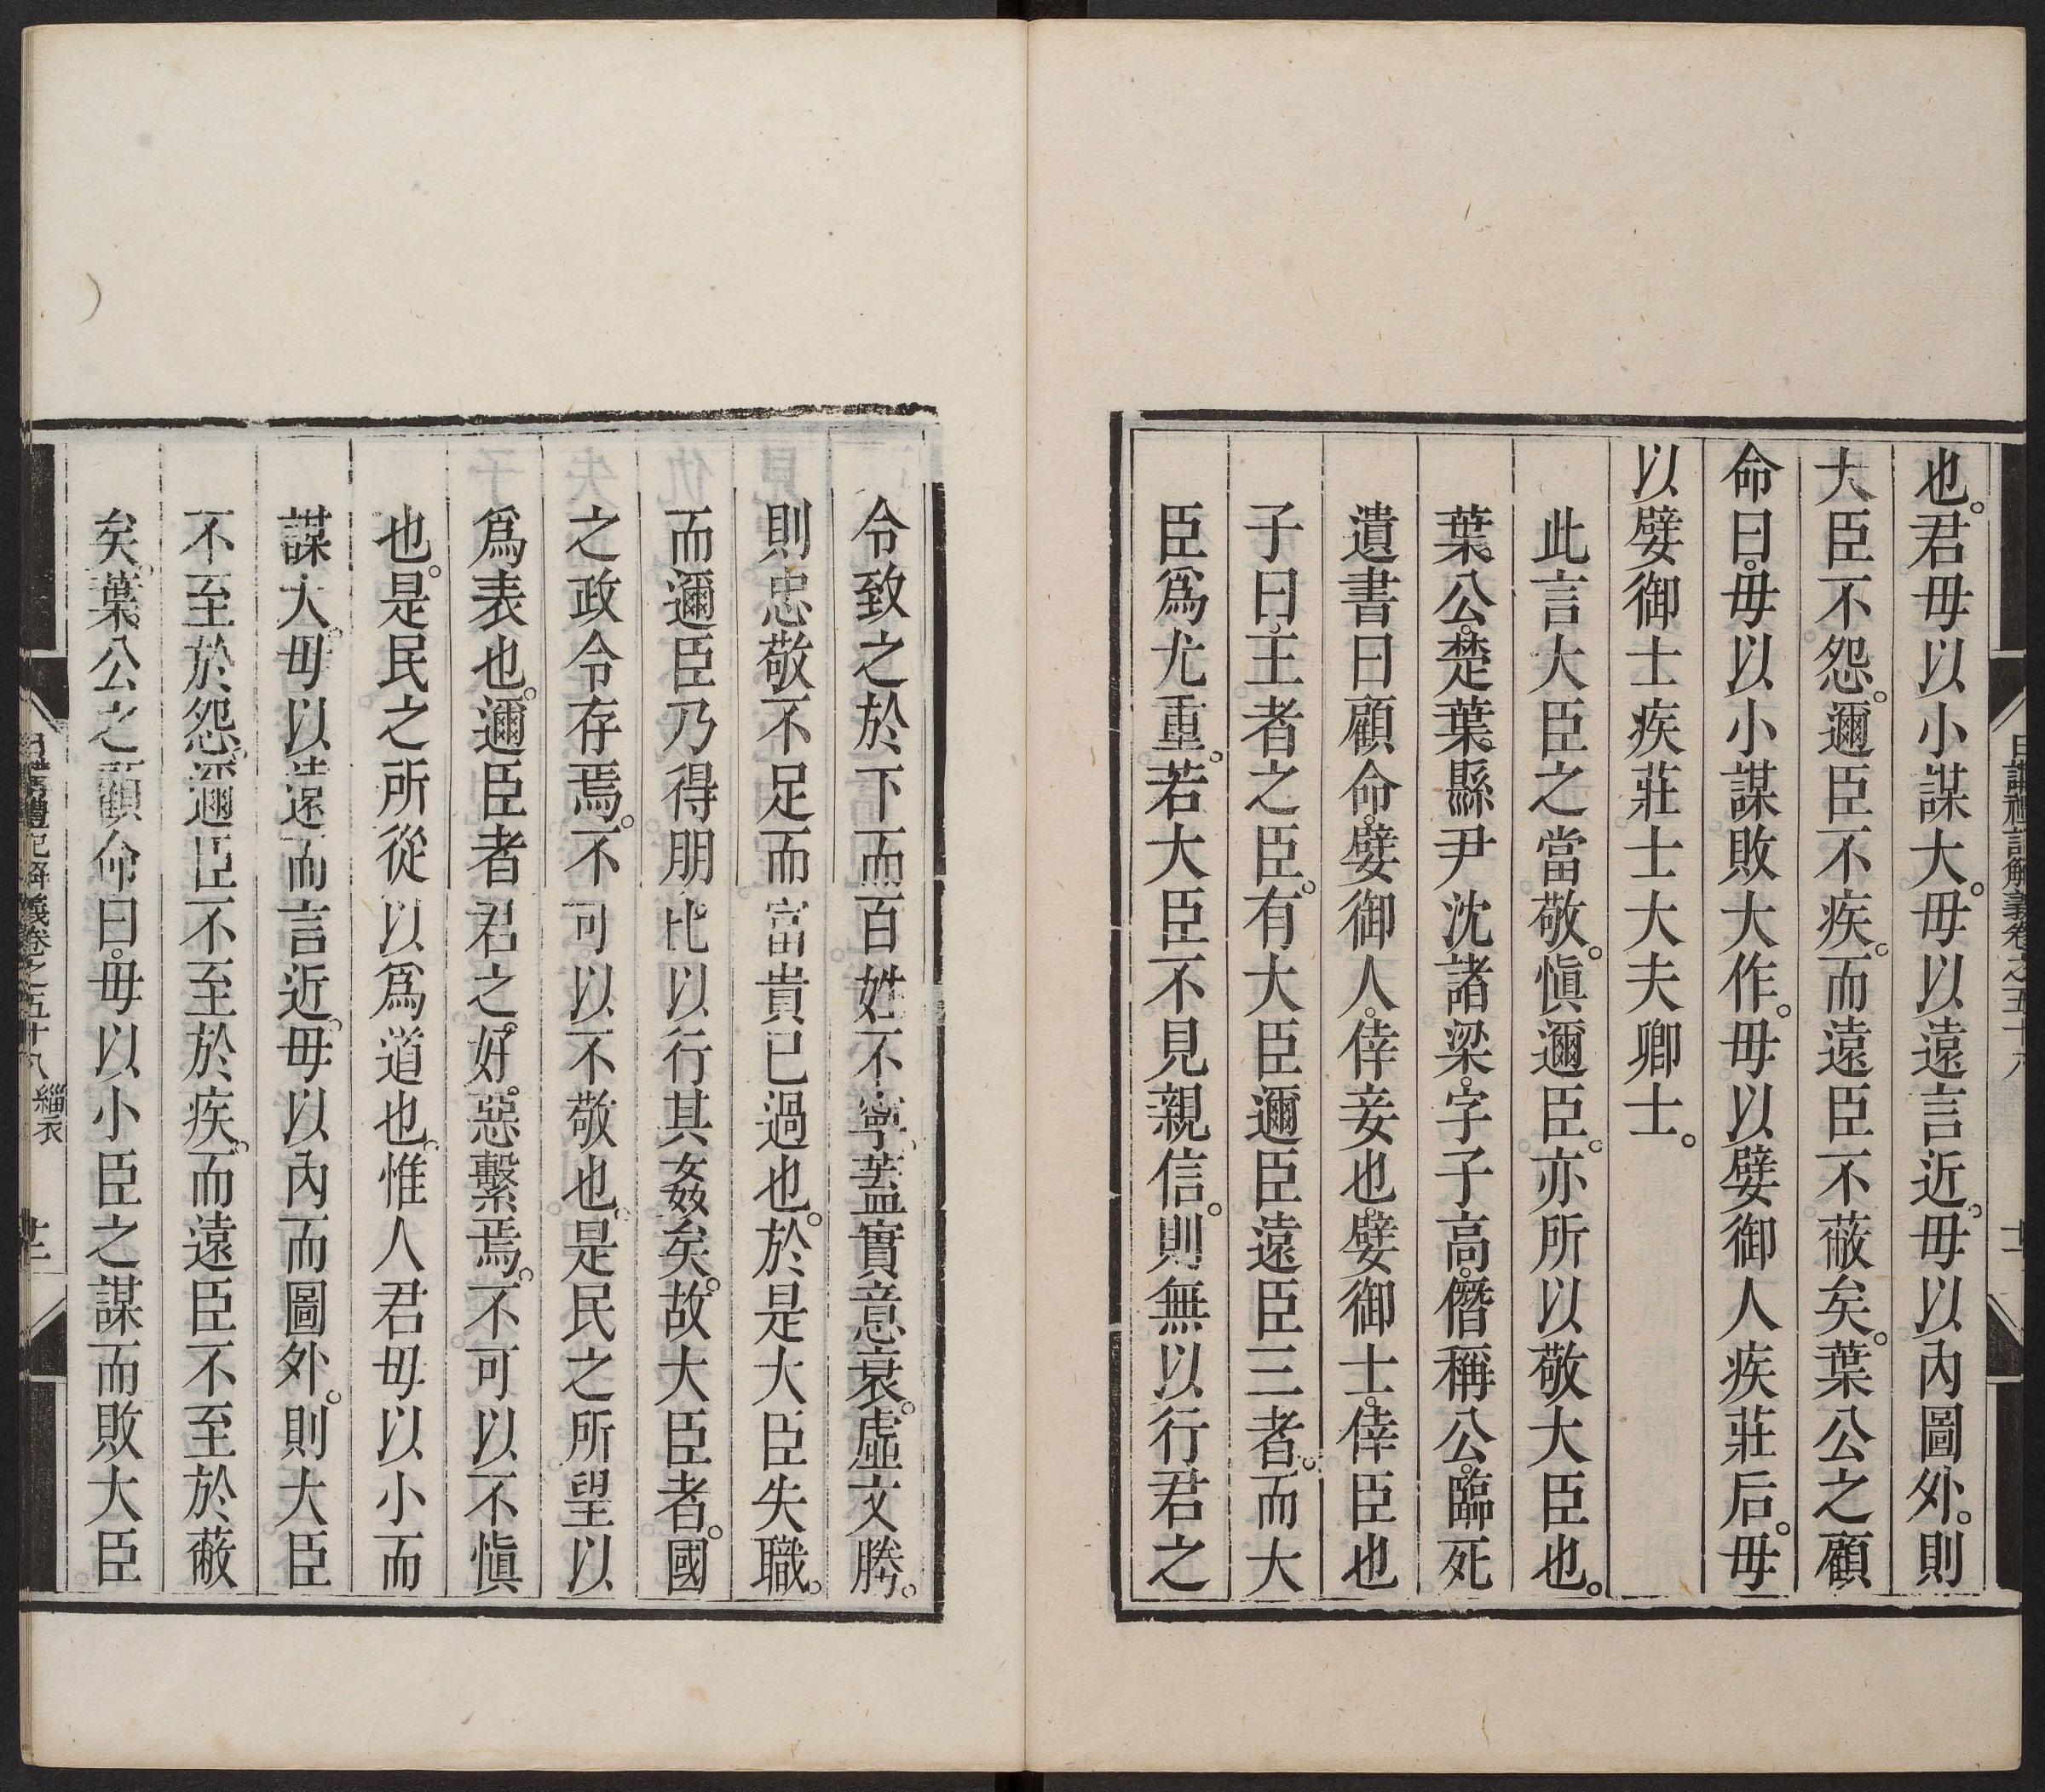 也。君毋以小謀大。毋以遠言近。毋以內圖外。則
大臣不怨。邇臣不疾。而遠臣不蔽矣。葉公之顧
命曰。毋以小謀敗大作。毋以嬖御人疾莊后。毋
以嬖御士疾莊士大夫卿士。
此言大臣之當敬。愼邇臣。亦所以敬大臣也。
葉公。楚葉縣尹沈諸梁。字子高。僭稱公。臨死
遺書曰顧命。嬖御人。倖妾也。嬖御士。倖臣也
子曰。王者之臣。有大臣邇臣遠臣三者。而大
臣爲尤重。若大臣不見親信。則無以行君之
令致之於下而百姓不寧。蓋實意衰。虛文勝。
則忠敬不足而富貴已過也。於是大臣失職。
而邇臣乃得朋比以行其姦矣。故大臣者。國
之政令存焉。不可以不敬也。是民之所望以
爲表也。邇臣者君之好惡繫焉。不可以不愼
也。是民之所從以爲道也。惟人君毋以小而
謀大。毋以遠而言近。毋以內而圖外。則大臣
不至於怨。邇臣不至於疾。而遠臣不至於蔽
矣。葉公之顧命曰。毋以小臣之謀而敗大臣
日講禮記解義卷之五十八 緇衣